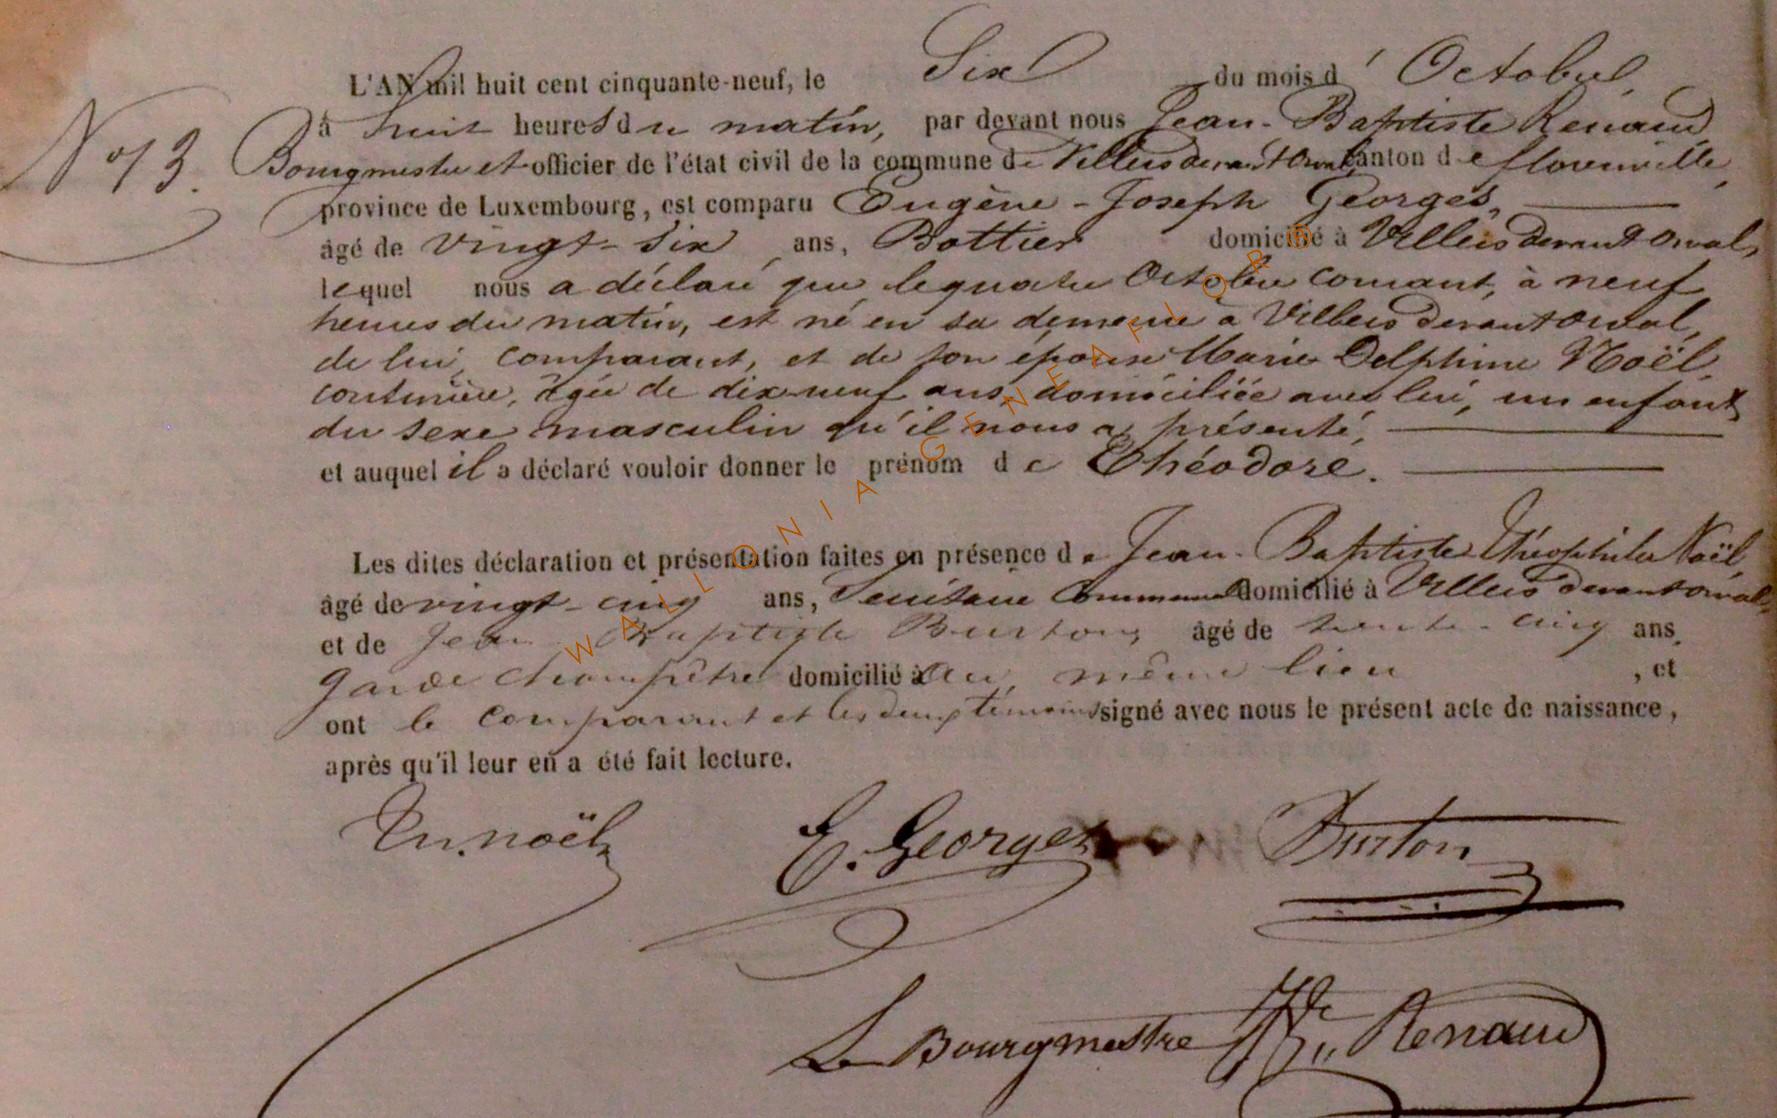 L'AN mil huit cent cinquante-neuf, le Six du mois d'Octobre,
N° 13.
à huit heures du matin, par devant nous Jean-Baptiste Renaud
Bourgmestre et officier de l'état civil de la commune de Villers devant Orval, canton de Florenville,
province de Luxembourg, est comparu Eugène-Joseph Georges,
âgé de vingt-six ans, Bottier domicilié à Villers devant Orval,
lequel nous a déclaré que le quatre Octobre courant, à neuf
heures du matin, est né en sa demeure à Villers devant Orval,
de lui, comparant, et de son épouse Marie Delphine Noël,
couturière, âgée de dix neuf ans, domiciliée avec lui, un enfant
du sexe masculin qu'il nous a présenté,
et auquel il a déclaré vouloir donner le prénom de Théodore.
Les dites déclaration et présentation faites en présence de Jean-Baptiste Théophile Noël,
âgé de vingt-cinq ans, Secrétaire Communal domicilié à Villers devant Orval,
et de Jean Baptiste Burton, âgé de trente-cinq ans,
garde champêtre domicilié à au même lieu, et
ont le comparant et les deux témoins signé avec nous le présent acte de naissance,
après qu'il leur en a été fait lecture.
Th. noël E. Georges Burton
Le Bourgmestre JBte Renaud
WALLONIA GENEAFLOR®